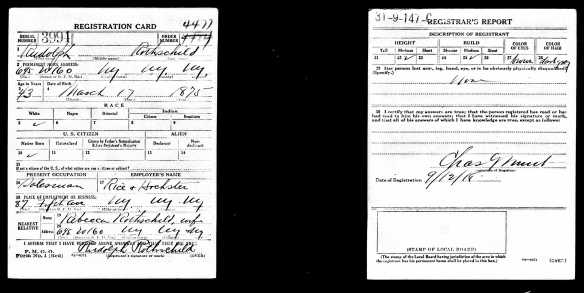 REGISTRATION CARD
SERIAL NUMBER 3991 ORDER NUMBER 4477
1 Rudolph Rothschild
2 PERMANENT HOME ADDRESS:
698 W 160 NY NY NY
Age in Years Date of Birth
43 March 17 1875
RACE
White Negro Oriental Indian
Citizen Noncitizen
U. S. CITIZEN ALIEN
Native Born Naturalized Citizen by Father's Naturalization Before Registrant's Majority Declarant Non-declarant
15 If not a citizen of the U. S., of what nation are you a citizen or subject?
PRESENT OCCUPATION EMPLOYER'S NAME
Salesman Rice & Hochster
18 PLACE OF EMPLOYMENT OR BUSINESS:
87 Fifth Ave NY NY NY
NEAREST RELATIVE Name Rebecca Rothschild, wife
Address 698 W 160 NY NY NY
I AFFIRM THAT I HAVE VERIFIED ABOVE ANSWERS AND THAT THEY ARE TRUE
P. M. G. O.
Form No. 1 (Red) Rudolph Rothschild
(Registrant's signature or mark) (OVER)
31-9-147-C
REGISTRAR'S REPORT
DESCRIPTION OF REGISTRANT
HEIGHT BUILD COLOR OF EYES COLOR OF HAIR
Tall Medium Short Slender Medium Stout
29 Has person lost arm, leg, hand, eye, or is he obviously physically disqualified?
(Specify.)
None
30 I certify that my answers are true; that the person registered has read or has had read to him his own answers; that I have witnessed his signature or mark, and that all of his answers of which I have knowledge are true, except as follows:
Date of Registration 9/12/18
(STAMP OF LOCAL BOARD)
(The stamp of the Local Board having jurisdiction of the area in which the registrant has his permanent home shall be placed in this box.)
(OVER)